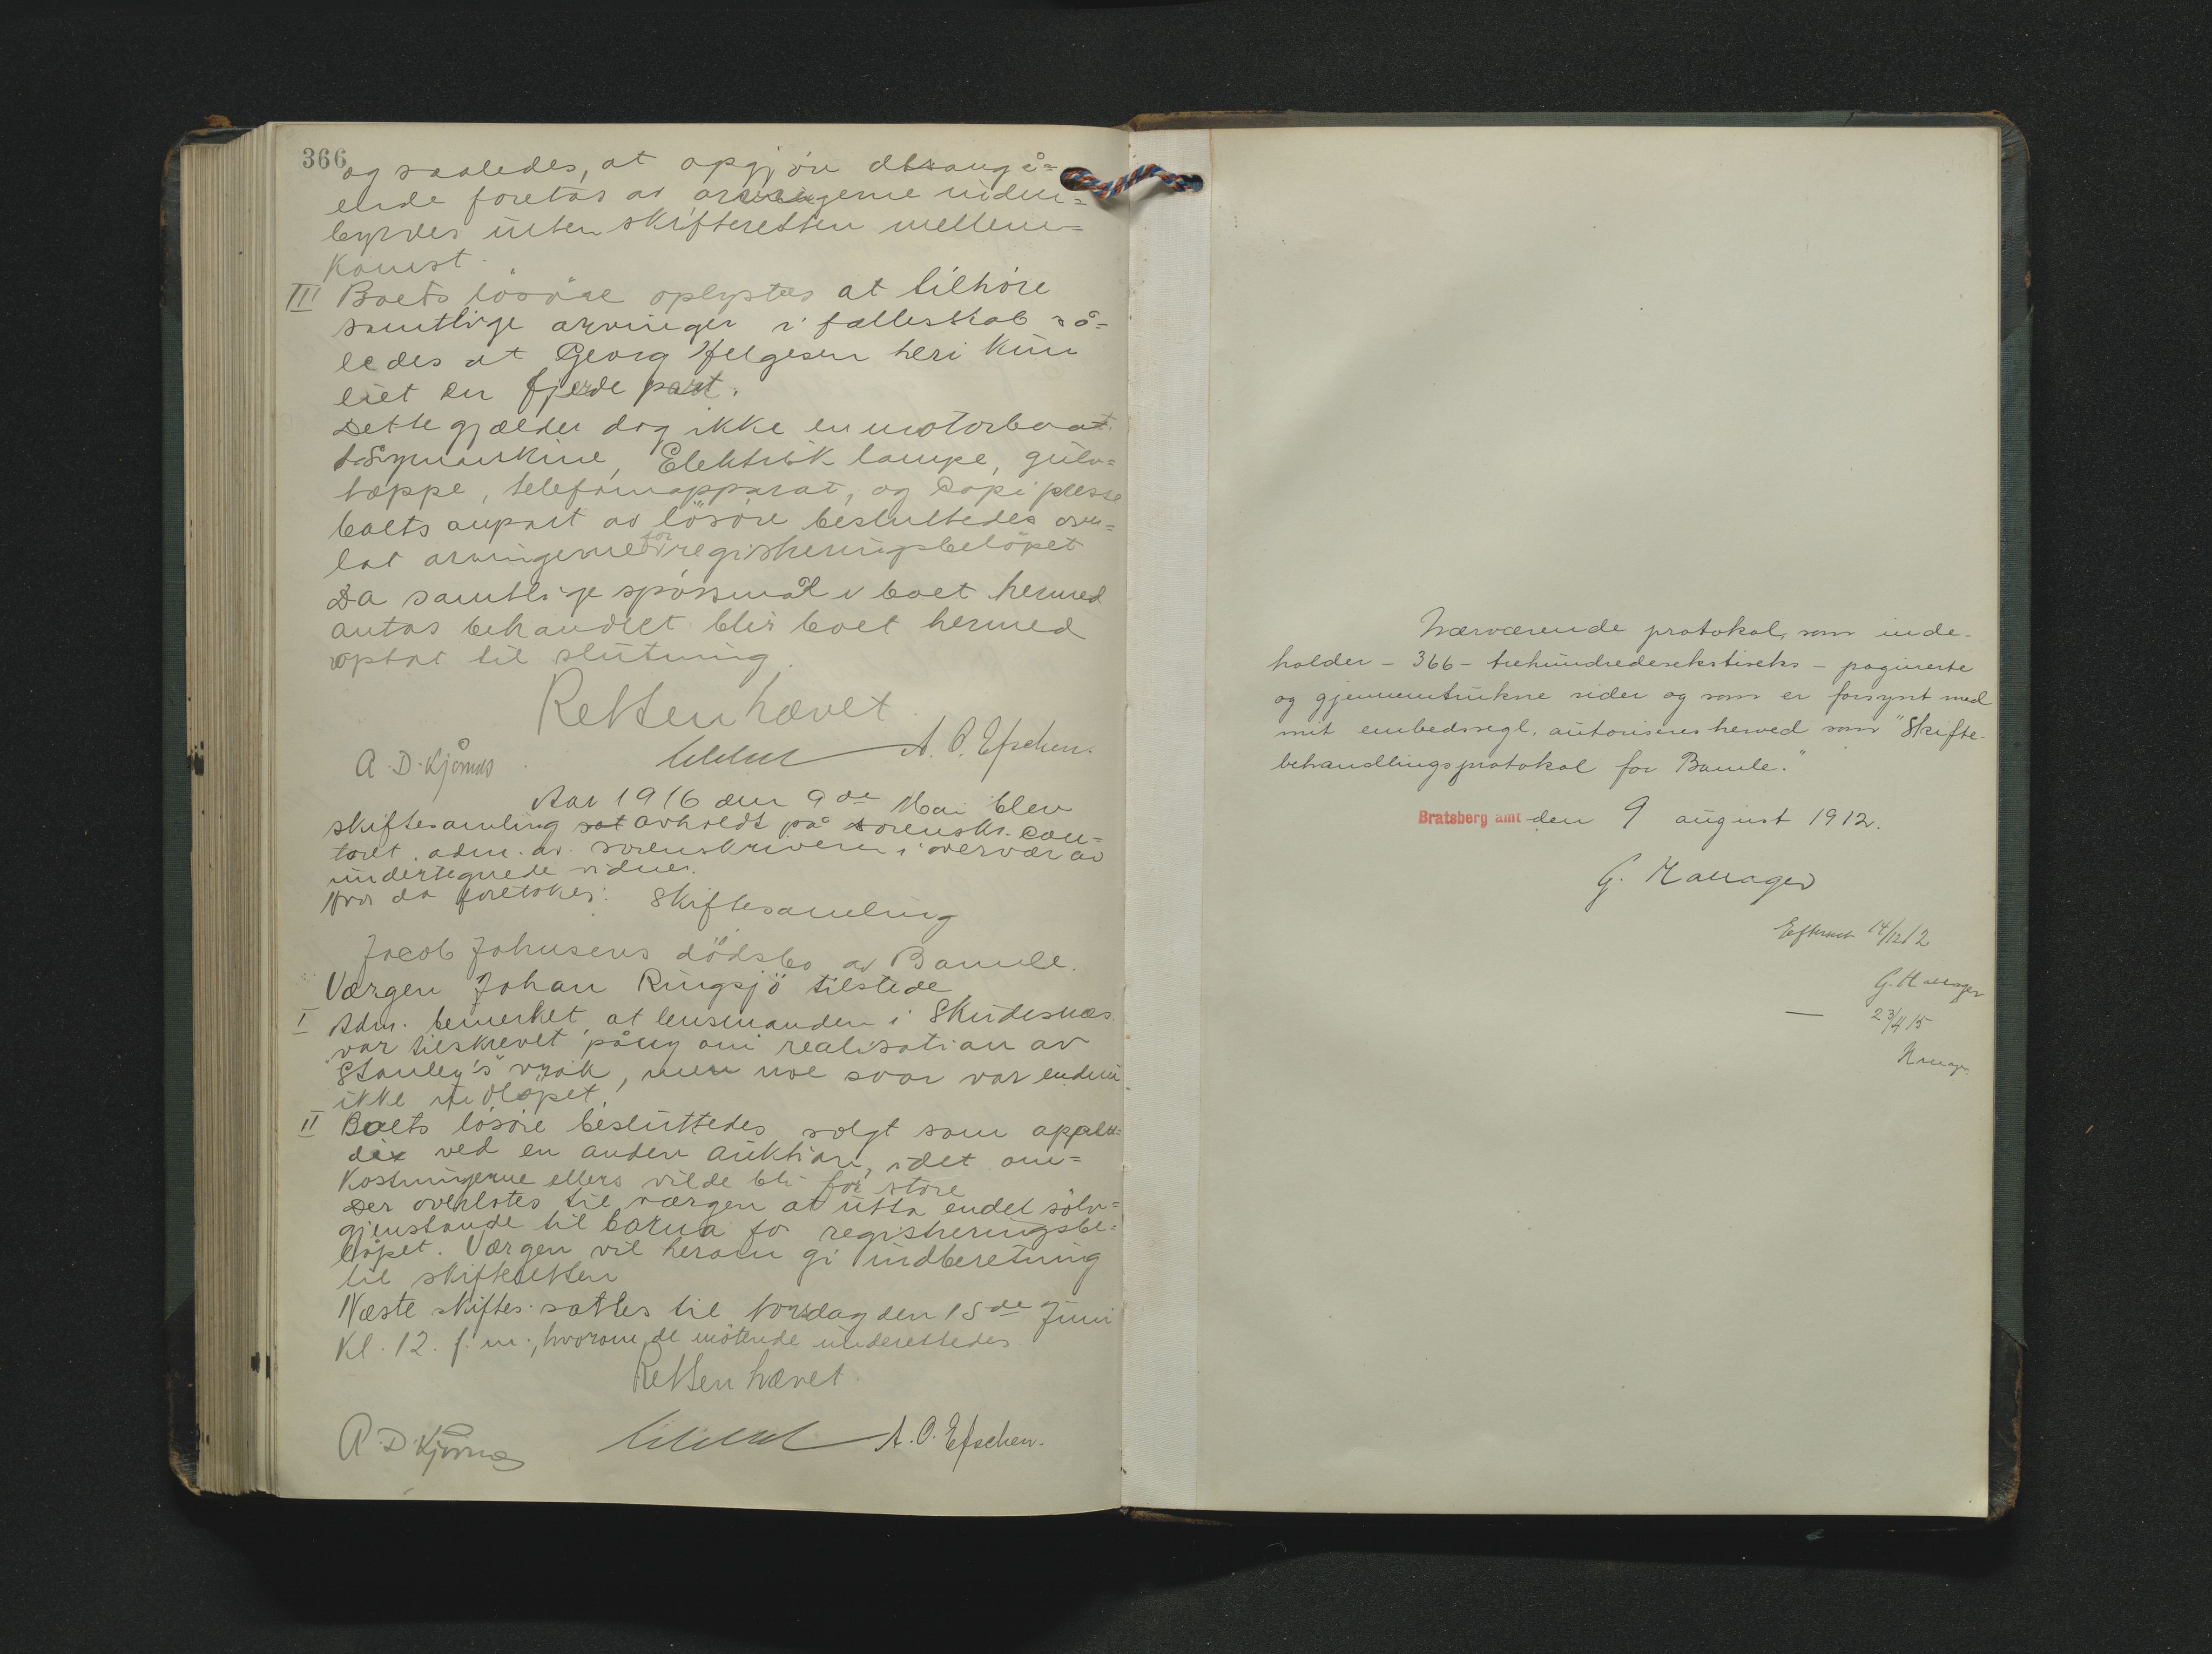 366
og saaledes, at opgjör dtrangå=
ende foretas av arvingerne inden=
byrdes uten skifteretten mellem=
komst.
III Boets lösöre oplystes at tilhöre
samtlige arvinger i fælleskab så=
ledes at Georg Helgesen heri kun
eiet en fjerde part.
Dette gjælder dog ikke en motorbaat
1 Symaskine, Elektrisk lampe, gulv=
tæppe, telefonapparat, og Copi presse
boets anpart av lösöre besluttedes over=
lat arvingerne for registreringsbelöpet
Da samtlige spörsmål i boet hermed
antas behandlet blir boet hermed
optat til slutning.
Retten hævet.
A. D. Kjörnæs A. O. Efschen.
Aar 1916 den 9de Mai blev
skiftesamling sat avholdt på sorenskr. Con=
toret, adm. av sorenskriveren i overvær av
undertegnede vidner.
Hvor da foretokes: Skiftesamling
Jacob Johnsens dödsbo av Bamle.
Værgen Johan Ringsjö tilstede
I Adm. bemerket, at lensmanden i Skudesnæs
var tilskrevet påny om realisation av
"Stanley's" vrak, men noe svar var endnu
ikke indlöpet.
II Boets lösöre besluttedes solgt som appen=
dix ved en anden auktion, idet om=
kostningerne ellers vilde bli for store
Der overlotes til værgen at utta endel sölv=
gjenstande til barna for registreringsbe=
löpet. Værgen vil herom gi indberetning
til skifteretten
Næste skiftes. sattes til torsdag den 15de Juni
Kl. 12. f. m., hvorom de mötende underettedes.
Retten hævet.
A. D. Kjörnæs A. O. Efschen.
Nærværende protokol, som inde-
holder - 366 - trehundredesekstiseks - paginerte
og gjennemtrukne sider og som er forsynt med
mit embedssegl, autoriseres herved som "Skifte-
behandlingsprotokol for Bamle."
Bratsberg amt den 9 august 1912.
G. Hallager
Efterset 14/12 12
G. Hallager
— 23/4 15
Hallager